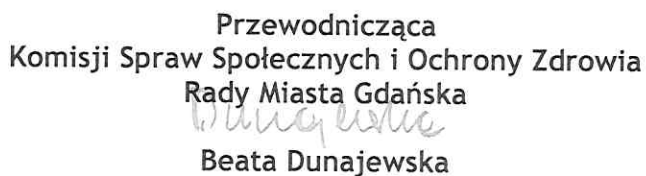 Przewodnicząca
Komisji Spraw Społecznych i Ochrony Zdrowia
Rady Miasta Gdańska
Dunajewska
Beata Dunajewska